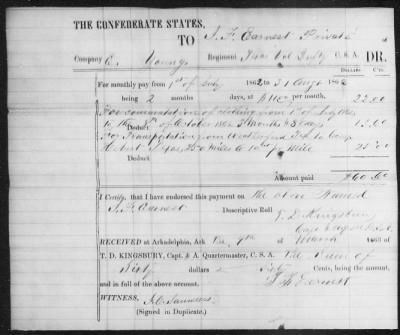 THE CONFEDERATE STATES,
TO J. F. Earnest Private
Company E. Youngs Regiment Texas Vol Infty C. S. A. DR.
DOLLARS CTS.
For monthly pay from 1st of July 1862 to 31 Augt 1862
being 2 months days, at $11 00 per month. 22.00
For commutation of clothing from of July 1862
to the 8th of October 1862 3 months & 8 days
Deduct
For Transportation from Texas to Camp
Texas, 250 miles at 10cts pr Mile
Deduct
Amount paid $60.50
I Certify, that I have endorsed this payment on the above Named
J. F. Earnest Descriptive Roll
T. D. Kingsbury
Capt & A. Q. M. C.S.A.
RECEIVED at Arkadelphia, Ark the of March 1863 of
T. D. KINGSBURY, Capt. & A. Quartermaster, C. S. A. the sum of
Sixty dollars & Cents, being the amount,
and in full of the above account. J. F. Earnest
WITNESS,
(Signed in Duplicate.)